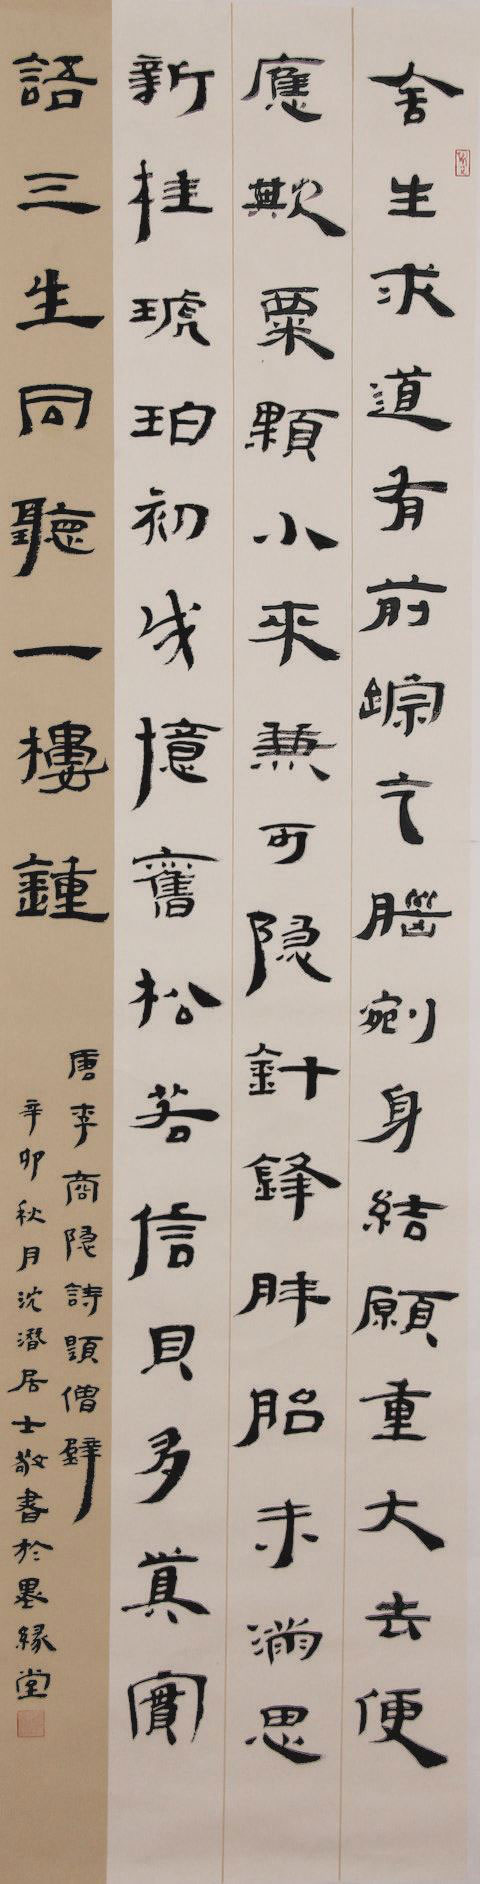 舍生求道有前踪乞腦剜身結願重大去便
應欺粟顆小來兼可隐針鋒肨胎未滿思
新桂琥珀初成憶舊松若信貝多真實
語三生同聽一樓鍾
唐李商隐詩題僧壁
辛卯秋月沈潛居士敬書於墨緣堂